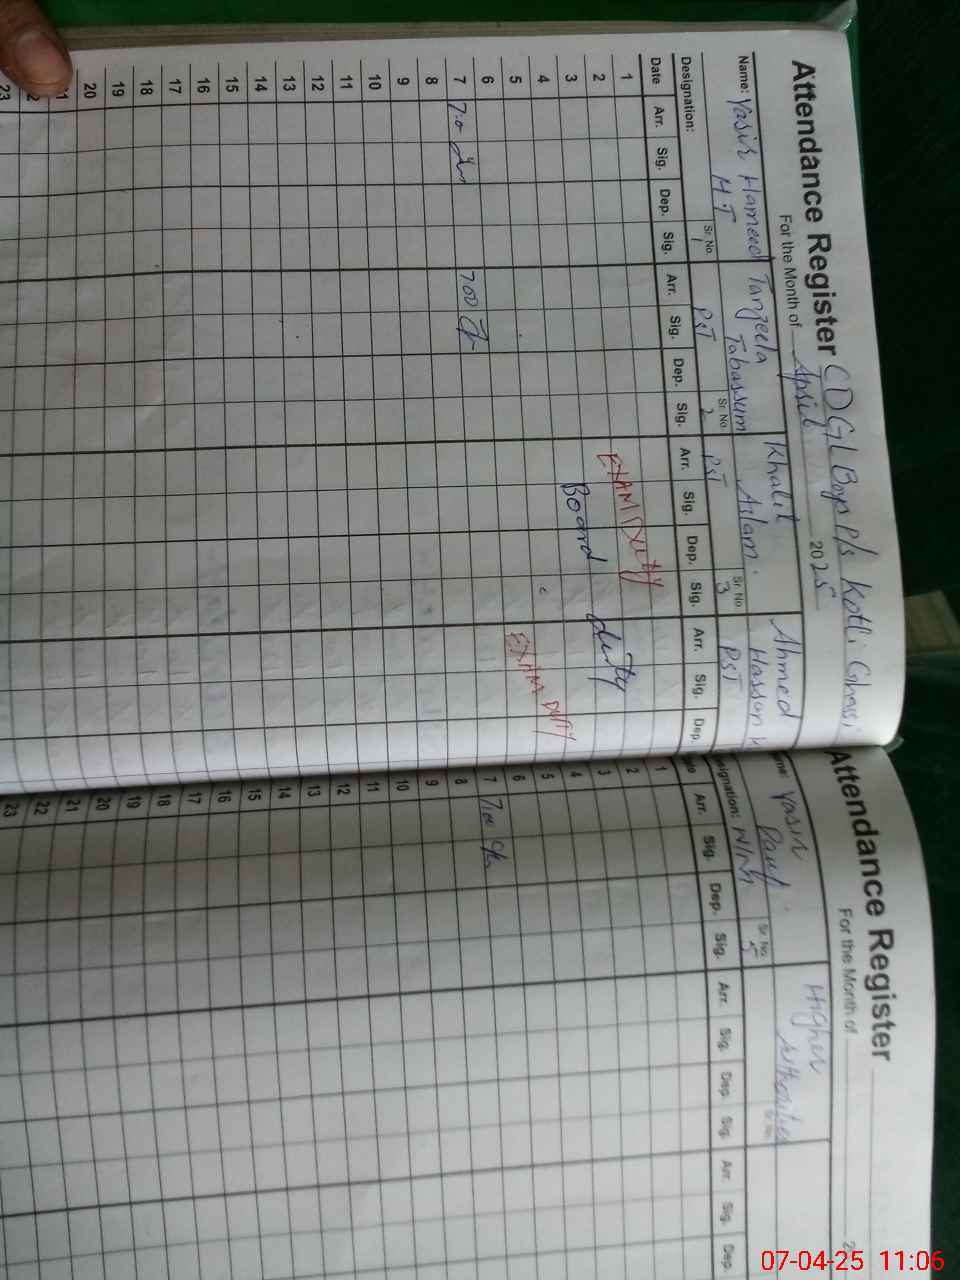 Attendance Register CDGL Boys P/s Kotli Ghasi
For the Month of April 2025
Name: Yasir Hameed Tanzeela Tabassum Khalil Aslam. Ahmed Hassan
H.T Sr. No. 1 PST Sr. No. 2 PST Sr. No. 3 PST
Designation:
Date Arr. Sig. Dep. Sig. Arr. Sig. Dep. Sig. Arr. Sig. Dep. Sig. Arr. Sig. Dep.
1
2 EXAM Duty
3 Board duty
4
5 EXAM DUTY
6
7 7:0 700
8
9
10
11
12
13
14
15
16
17
18
19
20
21
2
23
Attendance Register
For the Month of 2
Name: Yasir Higher
Designation: Sr. No. 5 Sr. No.
Arr. Sig. Dep. Sig. Arr. Sig. Dep. Sig. Arr. Sig. Dep
1
2
3
4
5
6
7 7:00
8
9
10
11
12
13
14
15
16
17
18
19
20
21
22
23
07-04-25 11:06